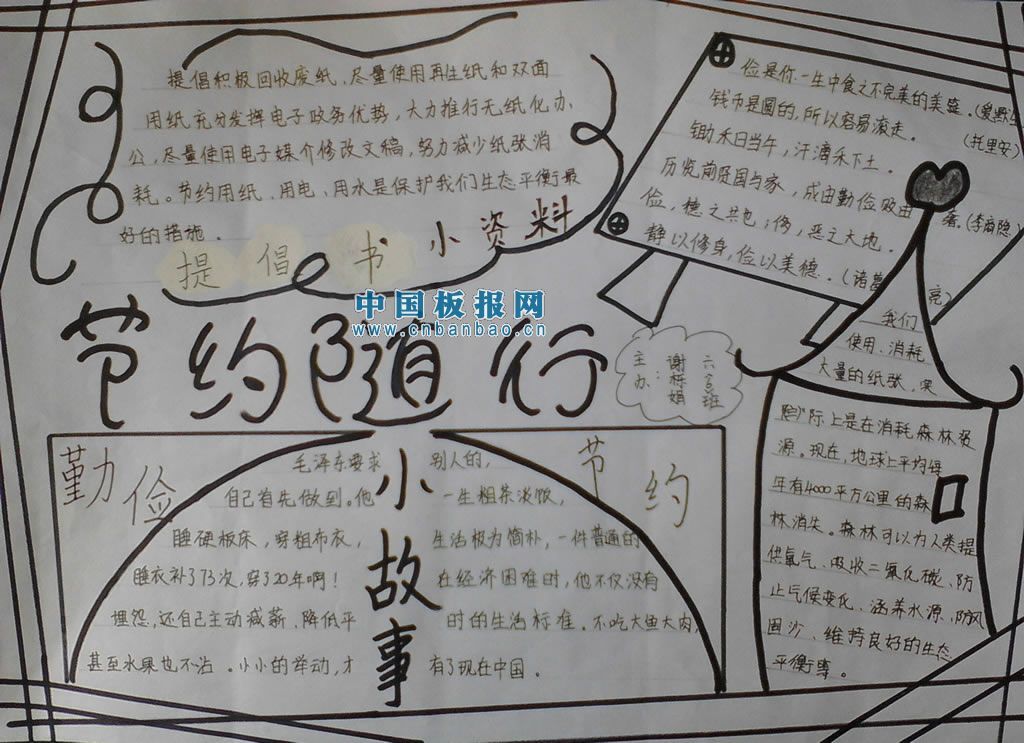 提倡积极回收废纸、尽量使用再生纸和双面
用纸充分发挥电子政务优势，大力推行无纸化办
公，尽量使用电子媒介修改文稿，努力减少纸张消
耗。节约用纸、用电、用水是保护我们生态平衡最
好的措施．
提倡书小资料
俭是你一生中食之不完美的美
钱币是圆的，所以容易滚走。
(托里安)
锄禾日当午，汗滴禾下土．
历览前贤国与家，成由勤俭败由
奢。(李商隐)
俭，德之共也；侈，恶之大地．
静以修身，俭以美德．(诸葛亮)
中国板报网
www.cnbanbao.cn
节约随行
主办：
六 班
我们
使用、消耗
大量的纸张，实
际上是在消耗森林资
源。现在，地球上平均每
年有4000平方公里的森
林消失。森林可以为人类提
供氧气、吸收二氧化碳、防
止气候变化、涵养水源、防风
固沙、维持良好的生态
平衡等。
勤俭
节约
小故事
毛泽东要求别人的，
自己首先做到。他一生粗茶淡饭，
睡硬板床，穿粗布衣，生活极为简朴，一件普通的
睡衣补了73次，穿了20年啊！在经济困难时，他不仅没有
埋怨，还自己主动减薪、降低平时的生活标准．不吃大鱼大肉，
甚至水果也不沾．小小的举动，才有了现在中国．